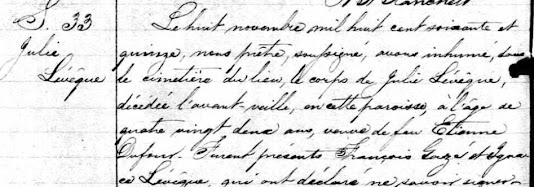 S. 33
Julie
Lévêque
Le huit novembre mil huit cent soixante et
quinze, nous prêtre, soussigné, avons inhumé, dans
le cimetière du lieu, le corps de Julie Lévêque,
décédée l'avant-veille, en cette paroisse, à l'âge de
quatre vingt deux ans, veuve de feu Etienne
Dufour. Furent présents François Gagé et Igna-
ce Lévêque, qui ont déclaré ne savoir signer